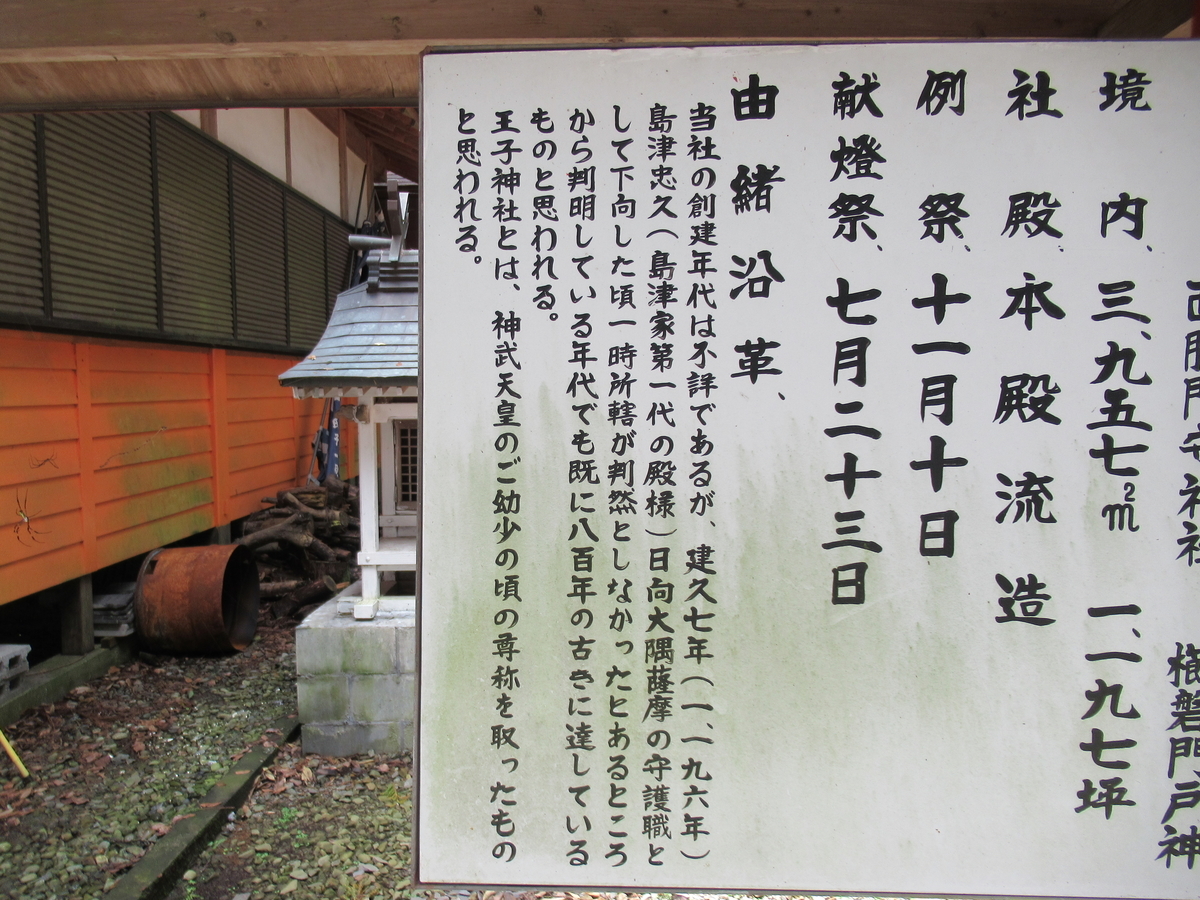 門守神社 櫛磐門戸神
境内、三、九五七㎡ 一、一九七坪
社殿 本殿流造
例祭、十一月十日
献燈祭、七月二十三日
由緒沿革、
当社の創建年代は不詳であるが、建久七年(一、一九六年)
島津忠久(島津家第一代の殿様)日向大隅薩摩の守護職と
して下向した頃一時所轄が判然としなかったとあるところ
から判明している年代でも既に八百年の古きに達している
ものと思われる。
王子神社とは、神武天皇のご幼少の頃の尊称を取ったもの
と思われる。